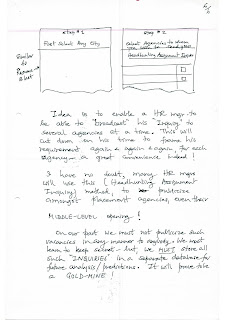 Step #1
First Select Any City
Similar to Resume Alert
Step #2
Select Agencies to whom you wish to send your Headhunting Assignment Inquiry
Idea is to enable a HR mgr to
be able to "broadcast" his Inquiry to
several agencies at a time. This will
cut down on his time to frame his
requirement again & again & again for each
agency — a great convenience indeed!
I have no doubt, many HR mgrs
will use this (Headhunting Assignment
Inquiry) method to publicise
amongst placement agencies, even their
MIDDLE-LEVEL opening!
On our part we must not publicise such
vacancies in any manner to anybody. We must
learn to keep secret – but, we MUST store all
such "INQUIRIES" in a separate database for
future analysis / predictions. It will prove to be
a GOLD-MINE!